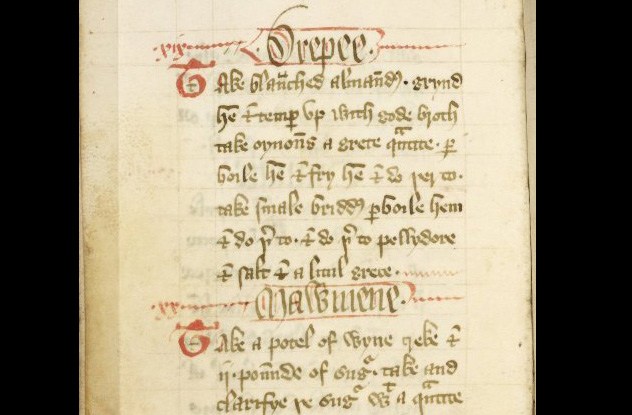 .xix. Drepee.
Take blanched almandꝭ. grynd
hē ⁊ temꝑ vp with gode broth
take oynoūs a grete qͣntite. ꝑ
boile hē ⁊ fry hē ⁊ do þer to.
take smale briddꝭ ꝑboile hem
⁊ do þͬto. ⁊ do þͬto pellydore
⁊ salt ⁊ a lituł grece.
.xx. Mawmene.
Take a potel of wyne greke ⁊
ii. pounde of sugͬ. take and
clarifye þe sugͬ wͭ a qͣntite